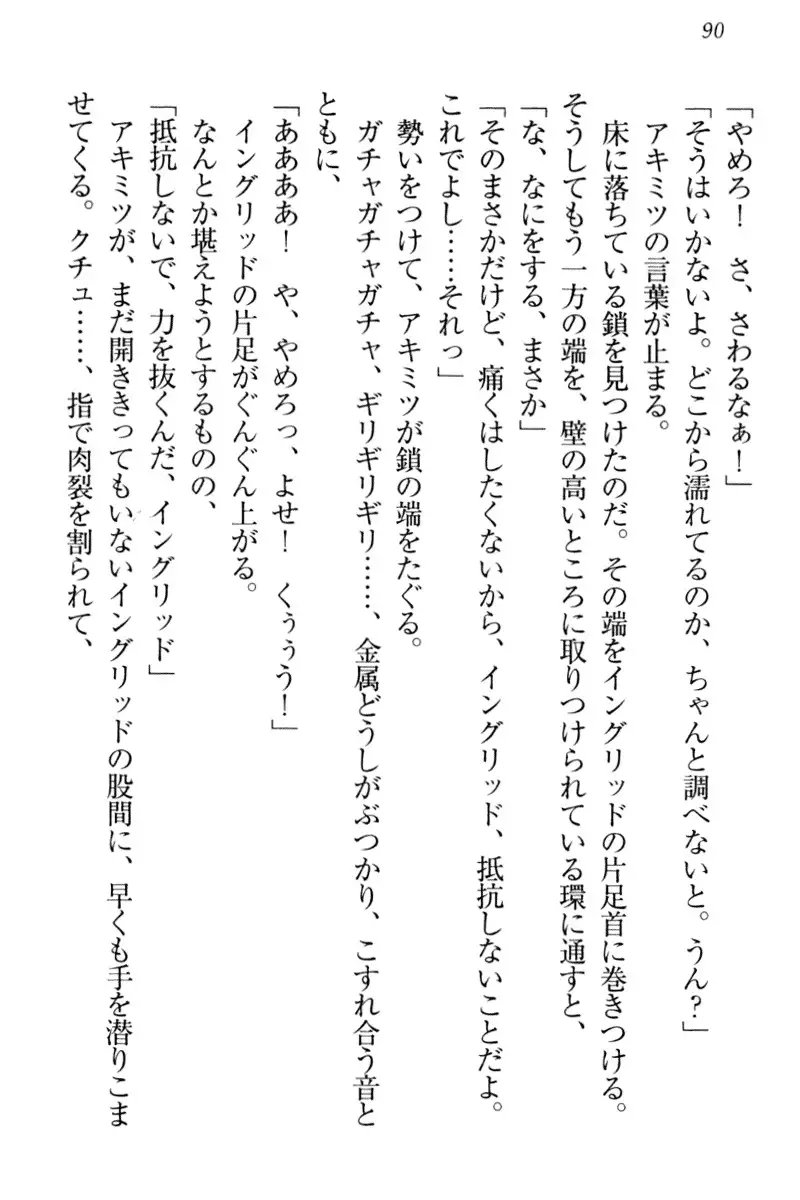 90
「やめろ！　さ、さわるなぁ！」
「そうはいかないよ。どこから濡れてるのか、ちゃんと調べないと。うん？」
アキミツの言葉が止まる。
床に落ちている鎖を見つけたのだ。その端をイングリッドの片足首に巻きつける。
そうしてもう一方の端を、壁の高いところに取りつけられている環に通すと、
「な、なにをする、まさか」
「そのまさかだけど、痛くはしたくないから、イングリッド、抵抗しないことだよ。
これでよし……それっ」
勢いをつけて、アキミツが鎖の端をたぐる。
ガチャガチャガチャ、ギリギリギリ……、金属どうしがぶつかり、こすれ合う音と
ともに、
「ああああ！　や、やめろっ、よせ！　くぅぅう！」
イングリッドの片足がぐんぐん上がる。
なんとか堪えようとするものの、
「抵抗しないで、力を抜くんだ、イングリッド」
アキミツが、まだ開ききってもいないイングリッドの股間に、早くも手を潜りこま
せてくる。クチュ……、指で肉裂を割られて、